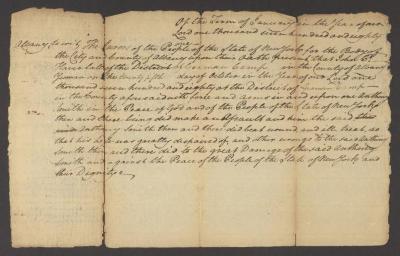 Of the Term of January in the Year of our
Lord one thousand seven hundred and eighty
one
Albany, to wit, The Jurors of the People of the State of New York for the Body of
the City and County of Albany upon their Oath Present, that
of the District of German Camp in the County of Albany
Yeoman on the twenty fifth day of October in the Year of our Lord one
thousand seven hundred and eighty at the District of
in the County aforesaid with force and arms in and upon one Anthony
Smith in the Peace of God and of the People of the State of New York
then and there being did make an Assault and him the said
Anthony Smith then and there did beat wound and ill treat, so
that his Life was greatly dispaired of, and other wrongs to the said Anthony
Smith then and there did to the great Damage of the said Anthony
Smith and against the Peace of the People of the State of New York and
their Dignity